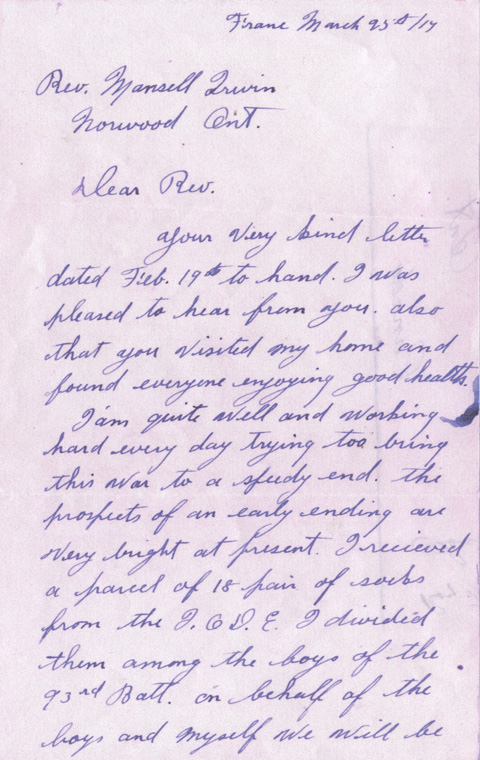 Franc March 25th/17
Rev. Mansell Irwin
Norwood Ont.
Dear Rev.
your very kind letter
dated Feb. 19th to hand. I was
pleased to hear from you. also
that you visited my home and
found everyone enjoying good health.
I am quite well and working
hard every day trying too bring
this war to a speedy end. the
prospects of an early ending are
very bright at present. I recieved
a parcel of 18 pair of socks
from the I.O.D.E. I divided
them among the boys of the
93rd Batt. on behalf of the
boys and myself we will be